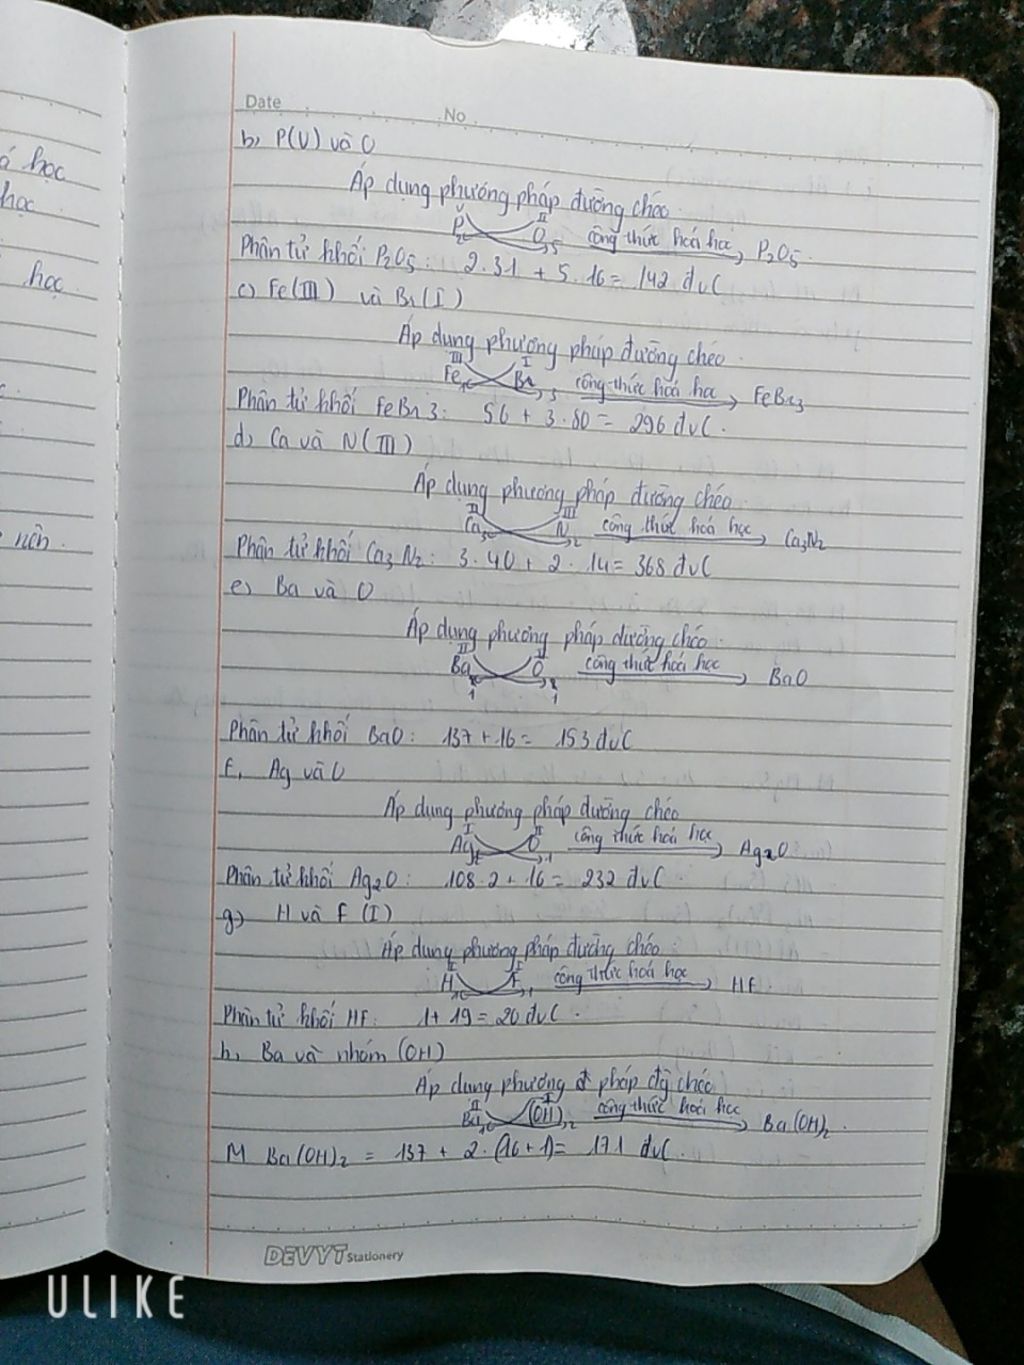 á học
học
học
nên.
Date
No
b, P(V) và O
Áp dụng phương pháp đường chéo
V II
P2 O5 công thức hoá học P2O5
Phân tử khối P2O5: 2.31 + 5.16 = 142 đvC
c) Fe(III) và Br(I)
Áp dụng phương pháp đường chéo
III I
Fe1 Br3 công thức hoá học FeBr3
Phân tử khối FeBr3: 56 + 3.80 = 296 đvC.
d, Ca và N(III)
Áp dụng phương pháp đường chéo
II III
Ca3 N2 công thức hoá học Ca3N2
Phân tử khối Ca3N2: 3.40 + 2.14 = 368 đvC
e) Ba và O
Áp dụng phương pháp đường chéo
II II
Ba O công thức hoá học BaO
1 1
Phân tử khối BaO: 137 + 16 = 153 đvC
f, Ag và O
Áp dụng phương pháp đường chéo
I II
Ag2 O1 công thức hoá học Ag2O
Phân tử khối Ag2O: 108.2 + 16 = 232 đvC
g) H và F (I)
Áp dụng phương pháp đường chéo
I I
H1 F1 công thức hoá học HF.
Phân tử khối HF: 1 + 19 = 20 đvC.
h, Ba và nhóm (OH)
Áp dụng phương pháp đg chéo
II I
Ba1 (OH)2 công thức hoá học Ba(OH)2.
M Ba(OH)2 = 137 + 2.(16 + 1) = 171 đvC.
DEVYT Stationery
ULIKE